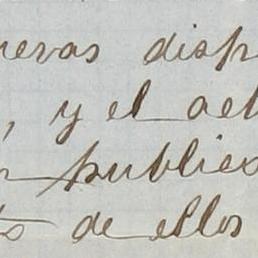 uevas disp
, y el act
n publico
tos de ellos